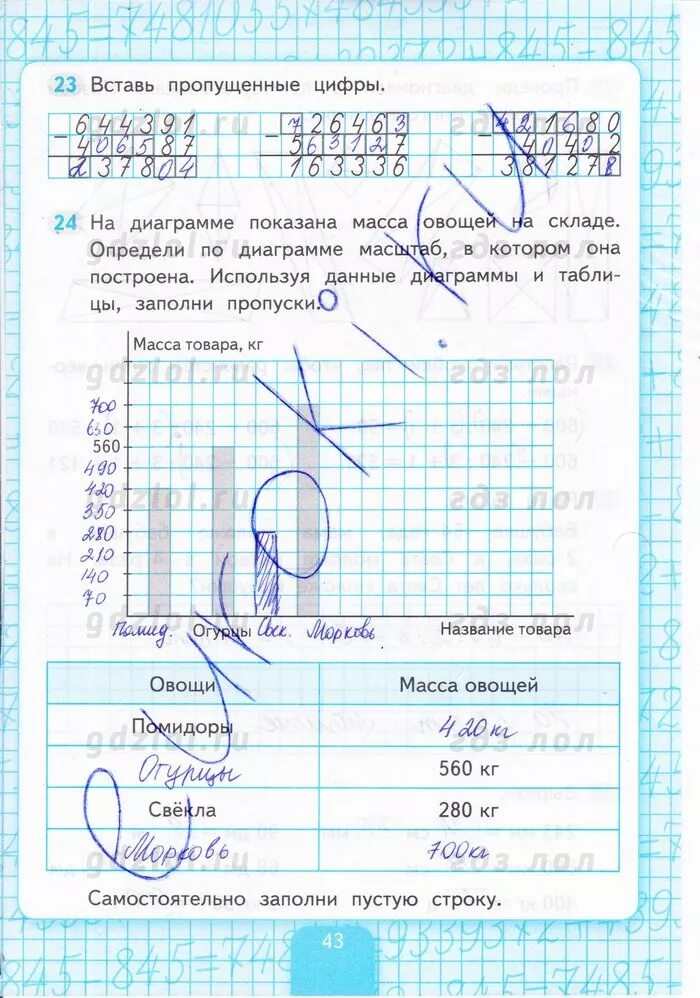 23 Вставь пропущенные цифры.
− 644391 − 726463 − 421680
406587 563127 40402
237804 163336 381278
24 На диаграмме показана масса овощей на складе.
Определи по диаграмме масштаб, в котором она
построена. Используя данные диаграммы и табли-
цы, заполни пропуски.
Масса товара, кг
700
630
560
490
420
350
280
210
140
70
Помид. Огурцы Свек. Морковь Название товара
Овощи Масса овощей
Помидоры 420 кг
Огурцы 560 кг
Свёкла 280 кг
Морковь 700 кг
Самостоятельно заполни пустую строку.
43
gdzlol.ru гдз лол